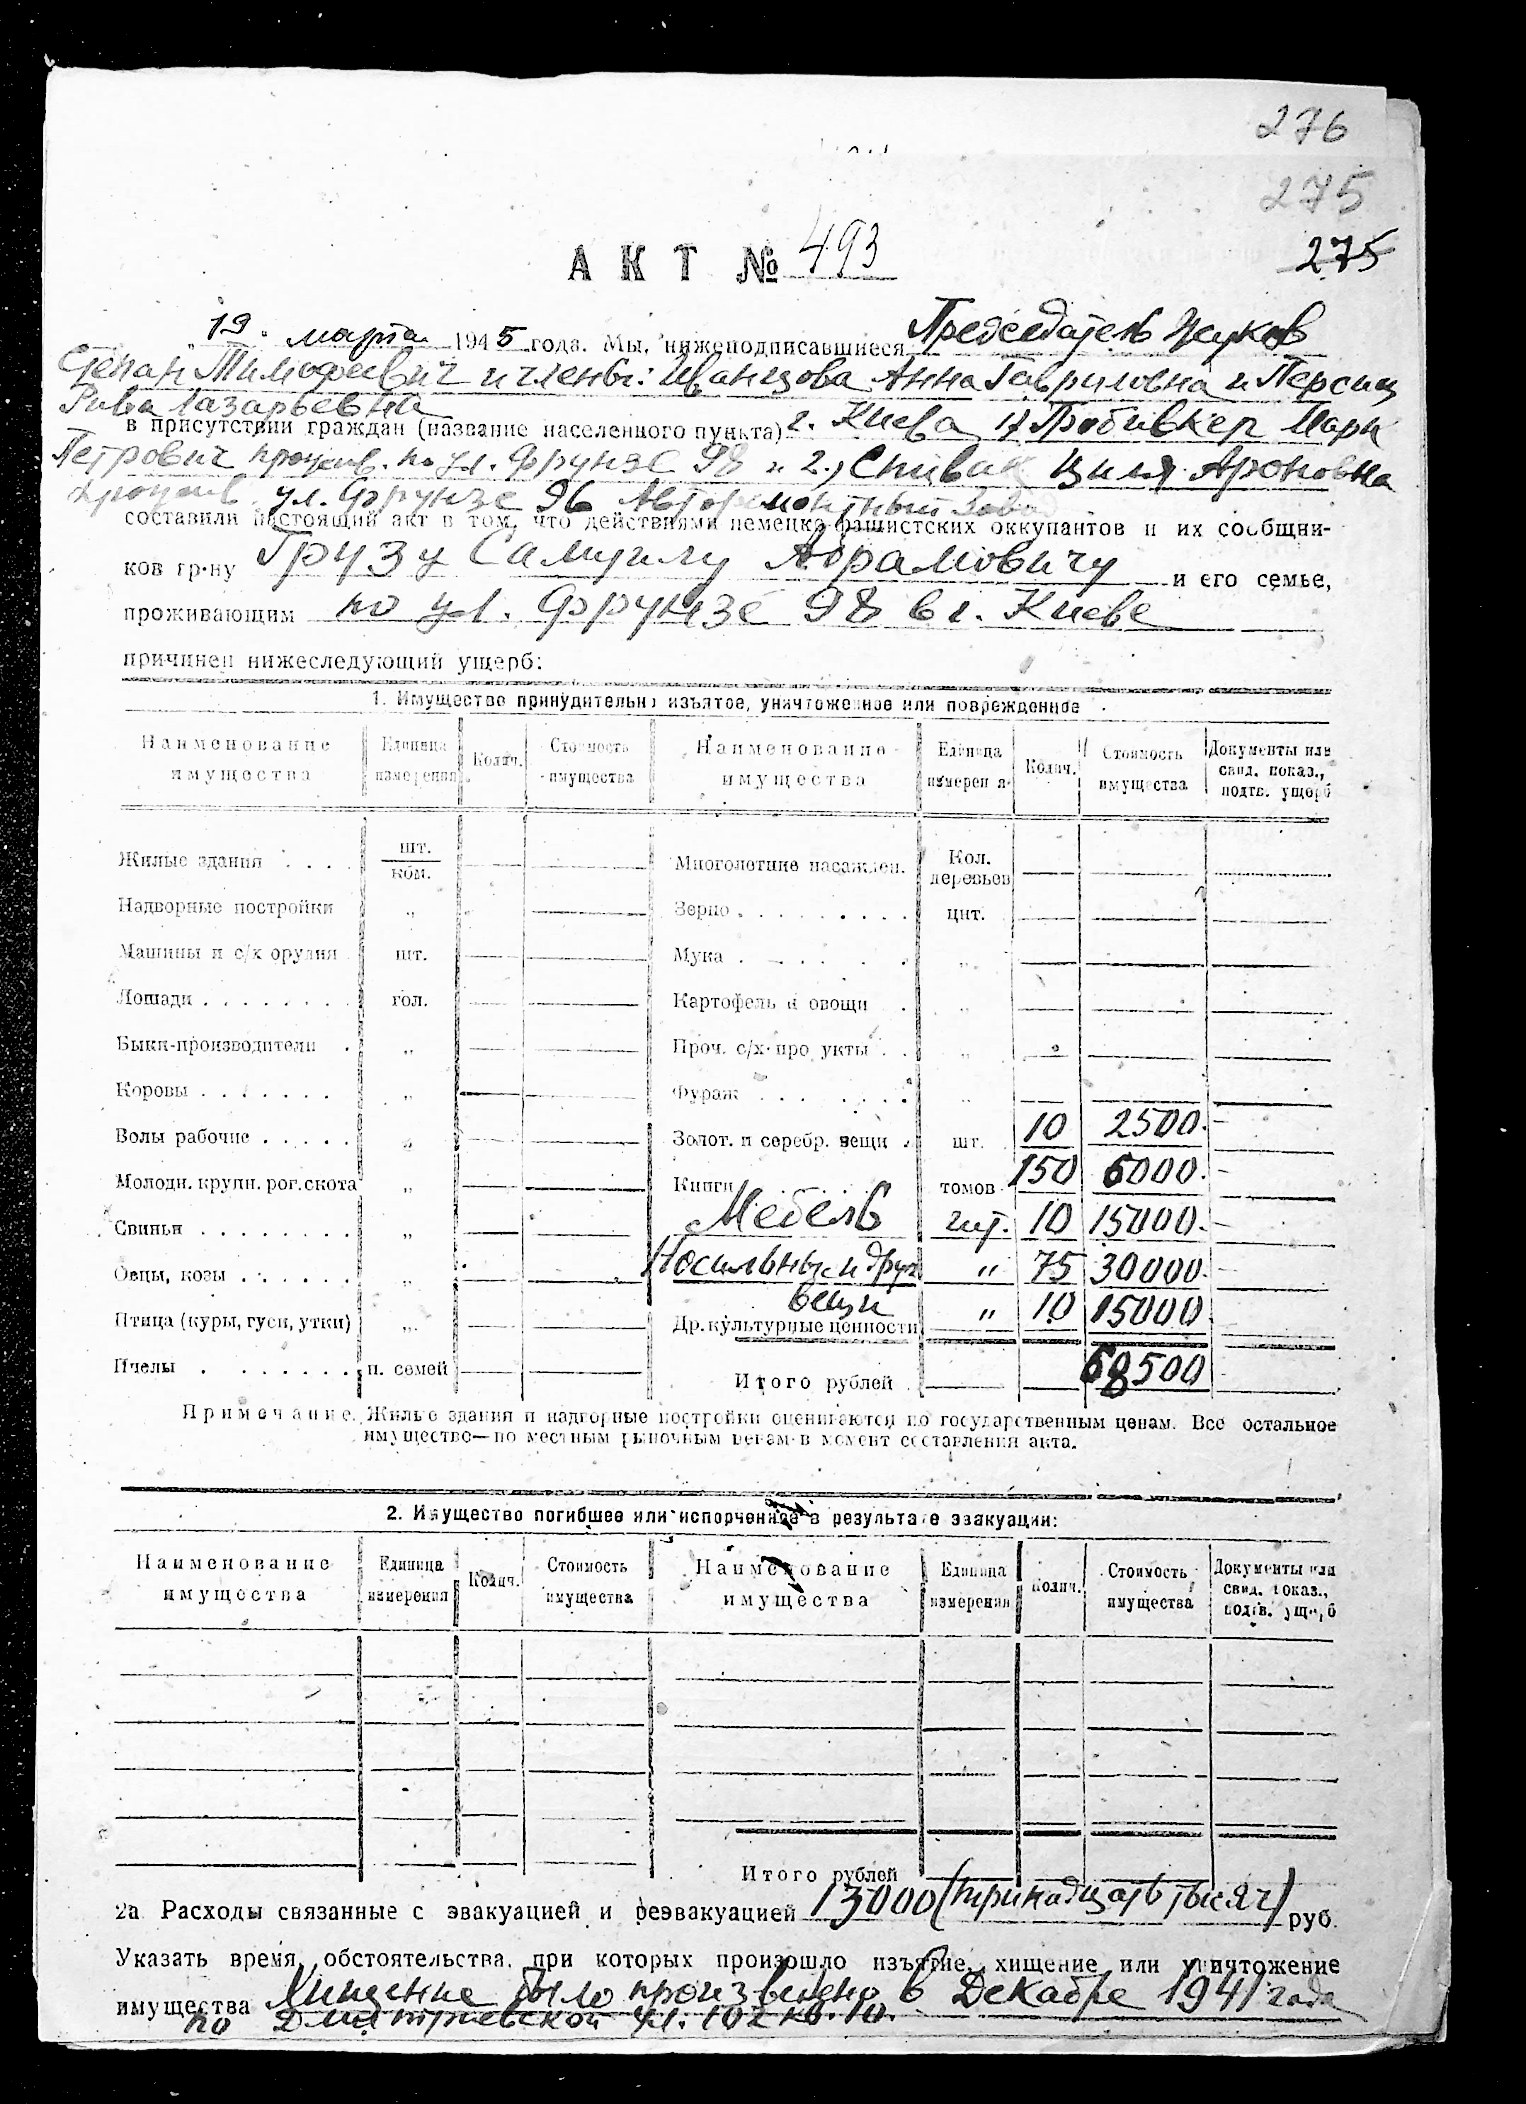 276
275
275
АКТ № 493
19 марта 1945 года. Мы, нижеподписавшиеся Председатель Жуков
Степан Тимофеевич и члены: Иванцова Анна Гавриловна и Персиц
Рива Лазарьевна
в присутствии граждан (название населенного пункта) г. Киева 1) Пробивкер Марк
Петрович прожив. по ул. Фрунзе 98 и 2) Спивак Циля Ароновна
прожив. ул. Фрунзе 96 Авторемонтный Завод
составили настоящий акт в том, что действиями немецко-фашистских оккупантов и их сообщни-
ков гр-ну Грузу Самуилу Абрамовичу и его семье,
проживающим по ул. Фрунзе 98 в г. Киеве
причинен нижеследующий ущерб:
1. Имущество принудительно изъятое, уничтоженное или поврежденное
Наименование имущества Единица измерения Колич. Стоимость имущества Наименование имущества Единица измерения Колич. Стоимость имущества Документы или свид. показ., подтв. ущерб
Жилые здания . . . . шт. / ком. Многолетние насажден. Кол. деревьев
Надворные постройки „ Зерно . . . . . . . . . цнт.
Машины и с/х орудия шт. Мука . . . . . . „
Лошади . . . . . . . . гол. Картофель и овощи . „
Быки-производители . „ Проч. с/х. про укты . . „
Коровы . . . . . . . „ Фураж . . . . . . . „
Волы рабочие . . . . . „ Золот. и серебр. вещи . шт. 10 2500. -
Молодн. крупн. рог. скота „ Книги томов 150 6000. -
Свиньи . . . . . . . . „ Мебель шт. 10 15000. -
Овцы, козы . . . . . . „ Носильные и друг. " 75 30000. -
вещи
Птица (куры, гуси, утки) „ Др. культурные ценности " 10 15000.
Пчелы . . . . . . . п. семей Итого рублей 68500 -
Примечание. Жилые здания и надворные постройки оцениваются по государственным ценам. Все остальное
имущество—по местным рыночным ценам в момент составления акта.
2. Имущество погибшее или испорченное в результате эвакуации:
Наименование имущества Единица измерения Колич. Стоимость имущества Наименование имущества Единица измерения Колич. Стоимость имущества Документы или свид. показ., подтв. ущерб
Итого рублей
2а Расходы связанные с эвакуацией и реэвакуацией 13000 (тринадцать тысяч) руб.
Указать время, обстоятельства, при которых произошло изъятие, хищение или уничтожение
имущества Хищение было произведено в Декабре 1941 года
по Дмитриевской ул. 102 кв. 10.